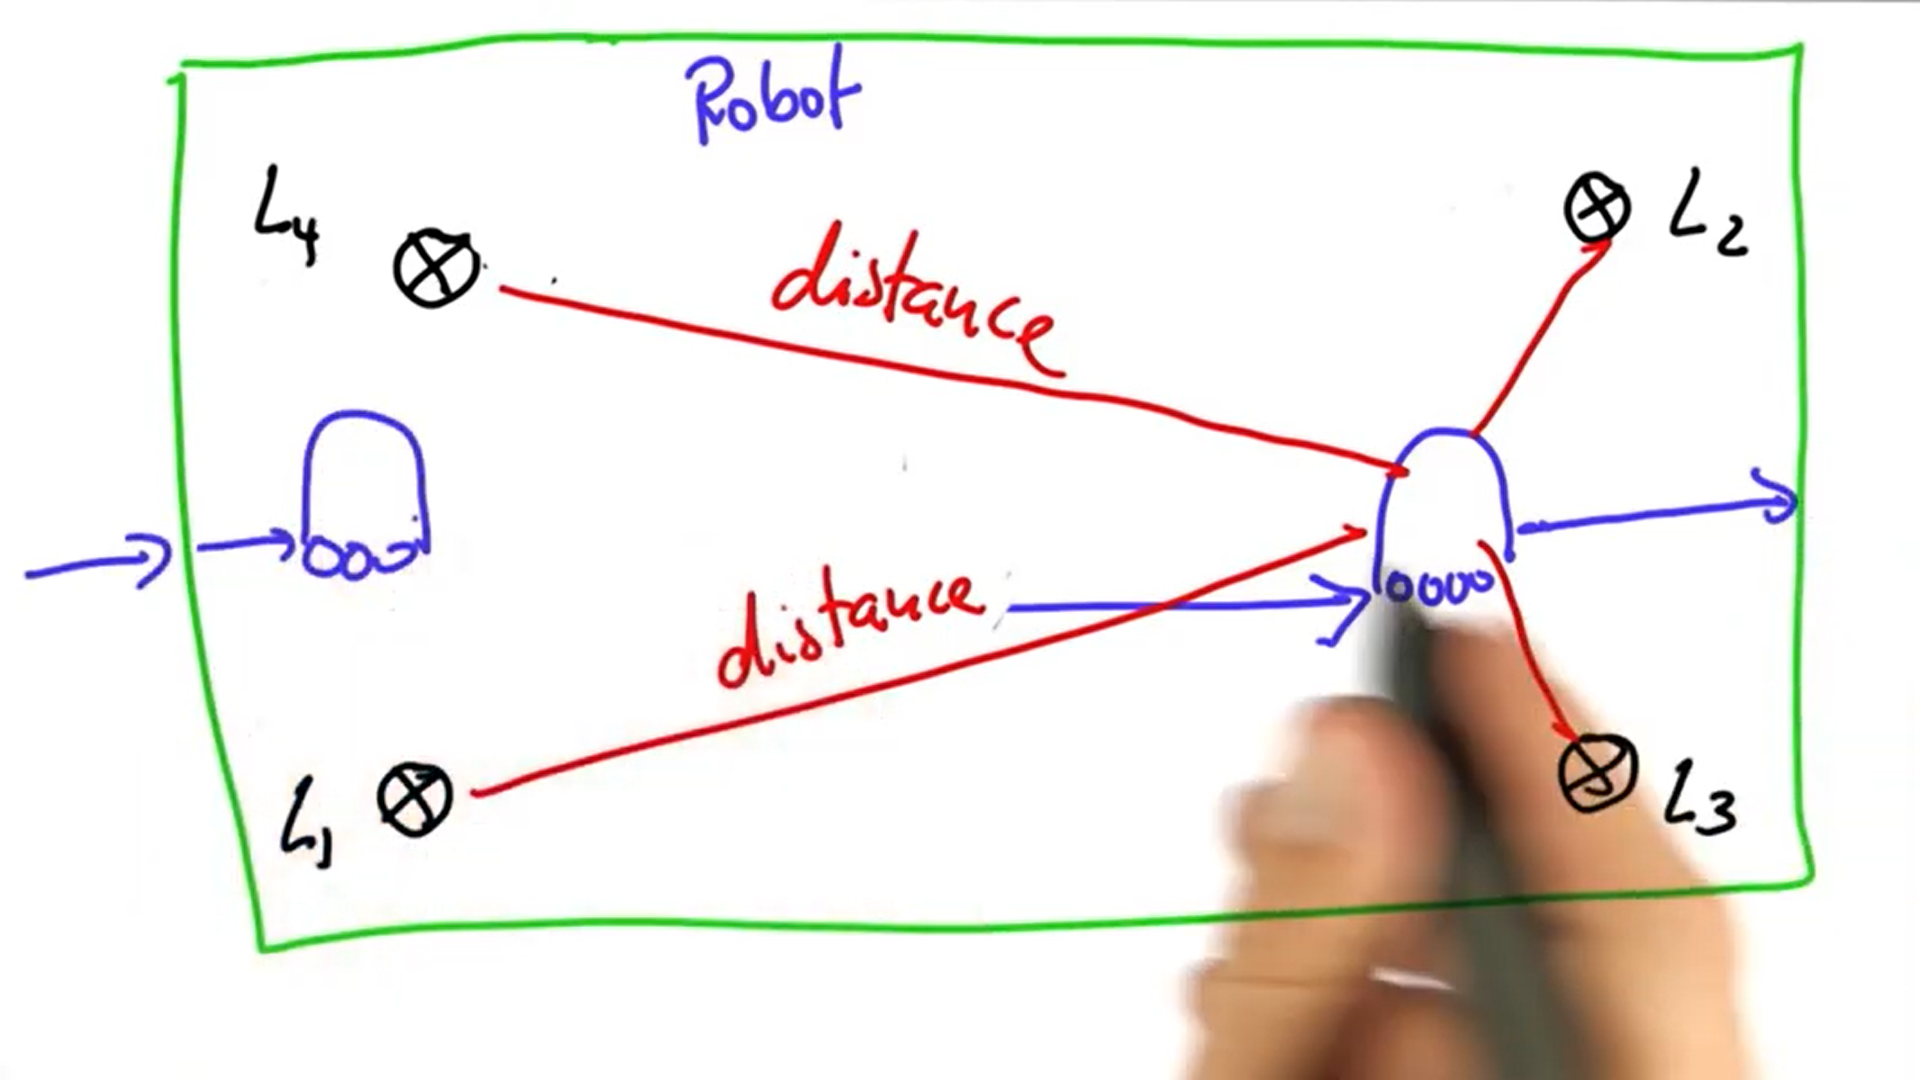 Robot
L4
L2
distance
distance
L1
L3